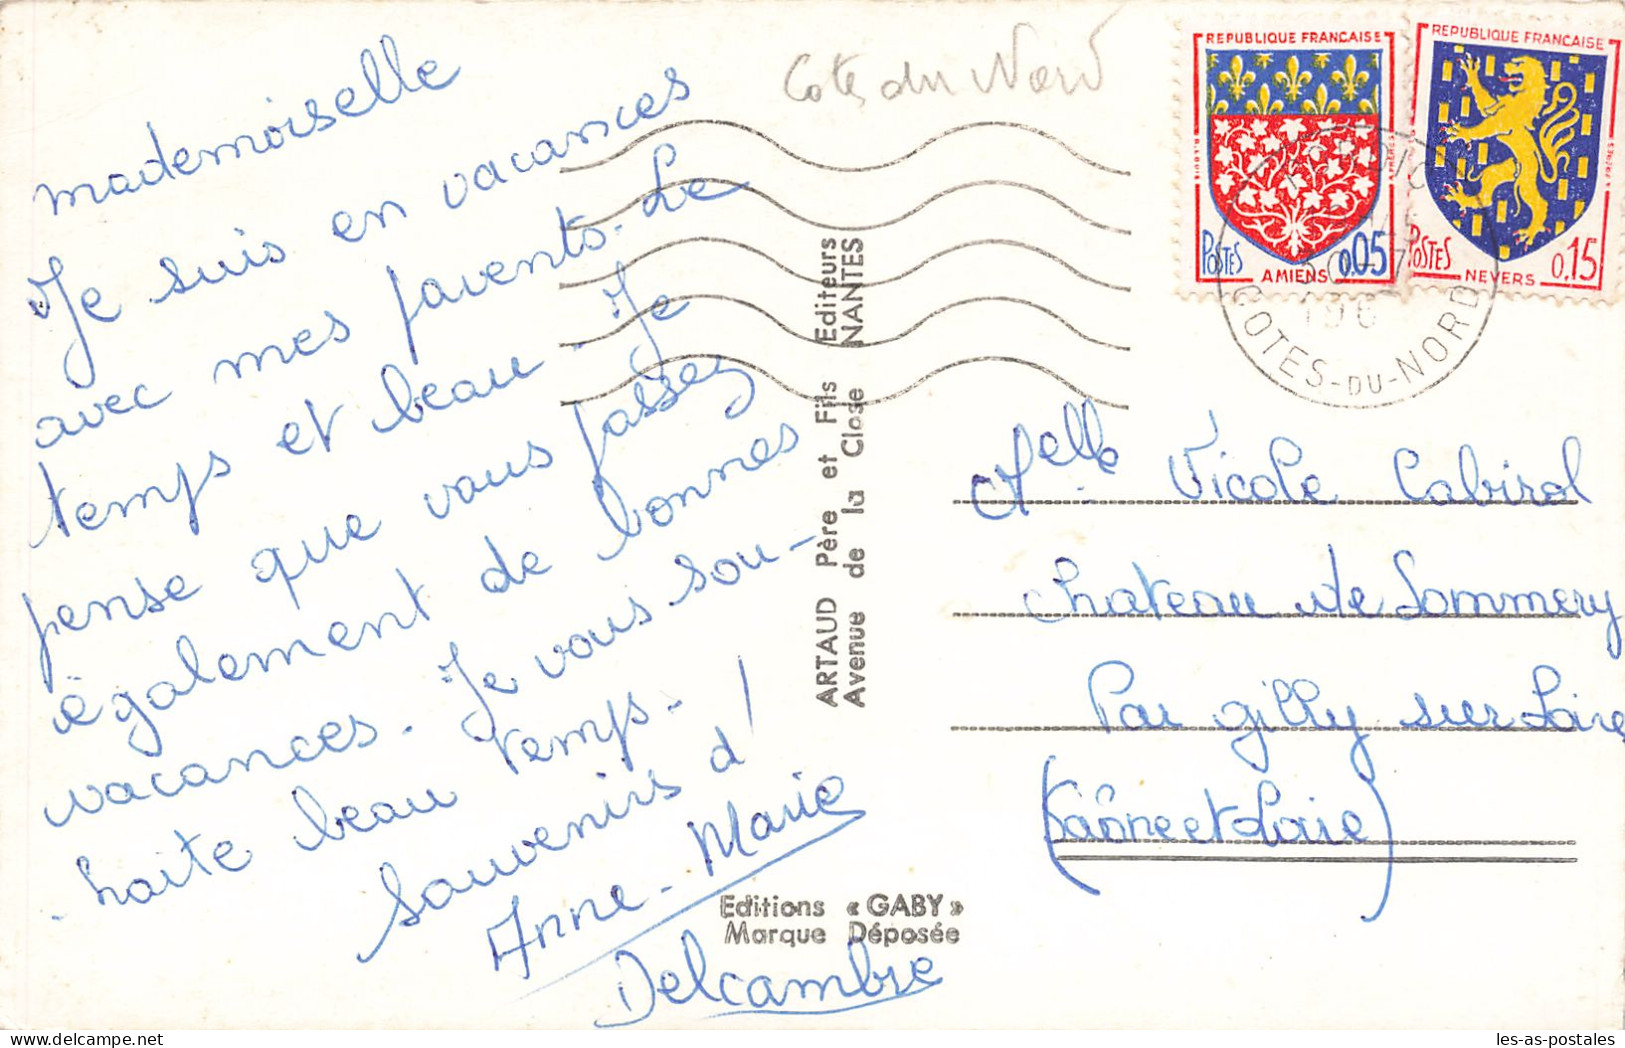 Cotes du Nord
mademoiselle
Je suis en vacances
avec mes parents. Le
temps et beau. Je
pense que vous passez
également de bonnes
vacances. Je vous sou-
haite beau temps.
Souvenirs d'
Anne-Marie
Delcambre
ARTAUD Père et Fils Editeurs
Avenue de la Close NANTES
Editions « GABY »
Marque Déposée
REPUBLIQUE FRANCAISE
POSTES
0.05
AMIENS
REPUBLIQUE FRANCAISE
POSTES
0.15
NEVERS
COTES-DU-NORD
Melle Nicole Cabirol
Chateau de Sommery
Par Gilly sur Loire
(Saône et Loire)
les-as-postales